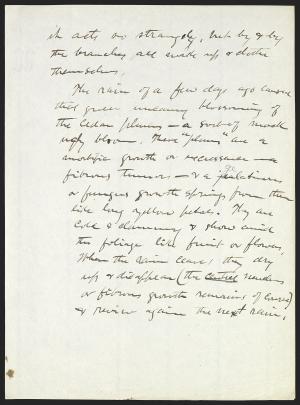 it acts so strangely, but by & by
the branches all wake up & clothe
themselves.
The rain of a few days ago caused
that green uncanny blossoming of
the Cedar plums — a sort of mock
ugly bloom. These "plums" are a
morbific growth or excrescence — a
fibrous tumor — & a gelatinous
or fungus growth springs from them
like long yellow petals. They are
cold & clammy & show amid
the foliage like fruit or flowers.
When the rain ceases they dry
up & disappear (the
or fibrous growth remains of course)
& revive again the next rain.